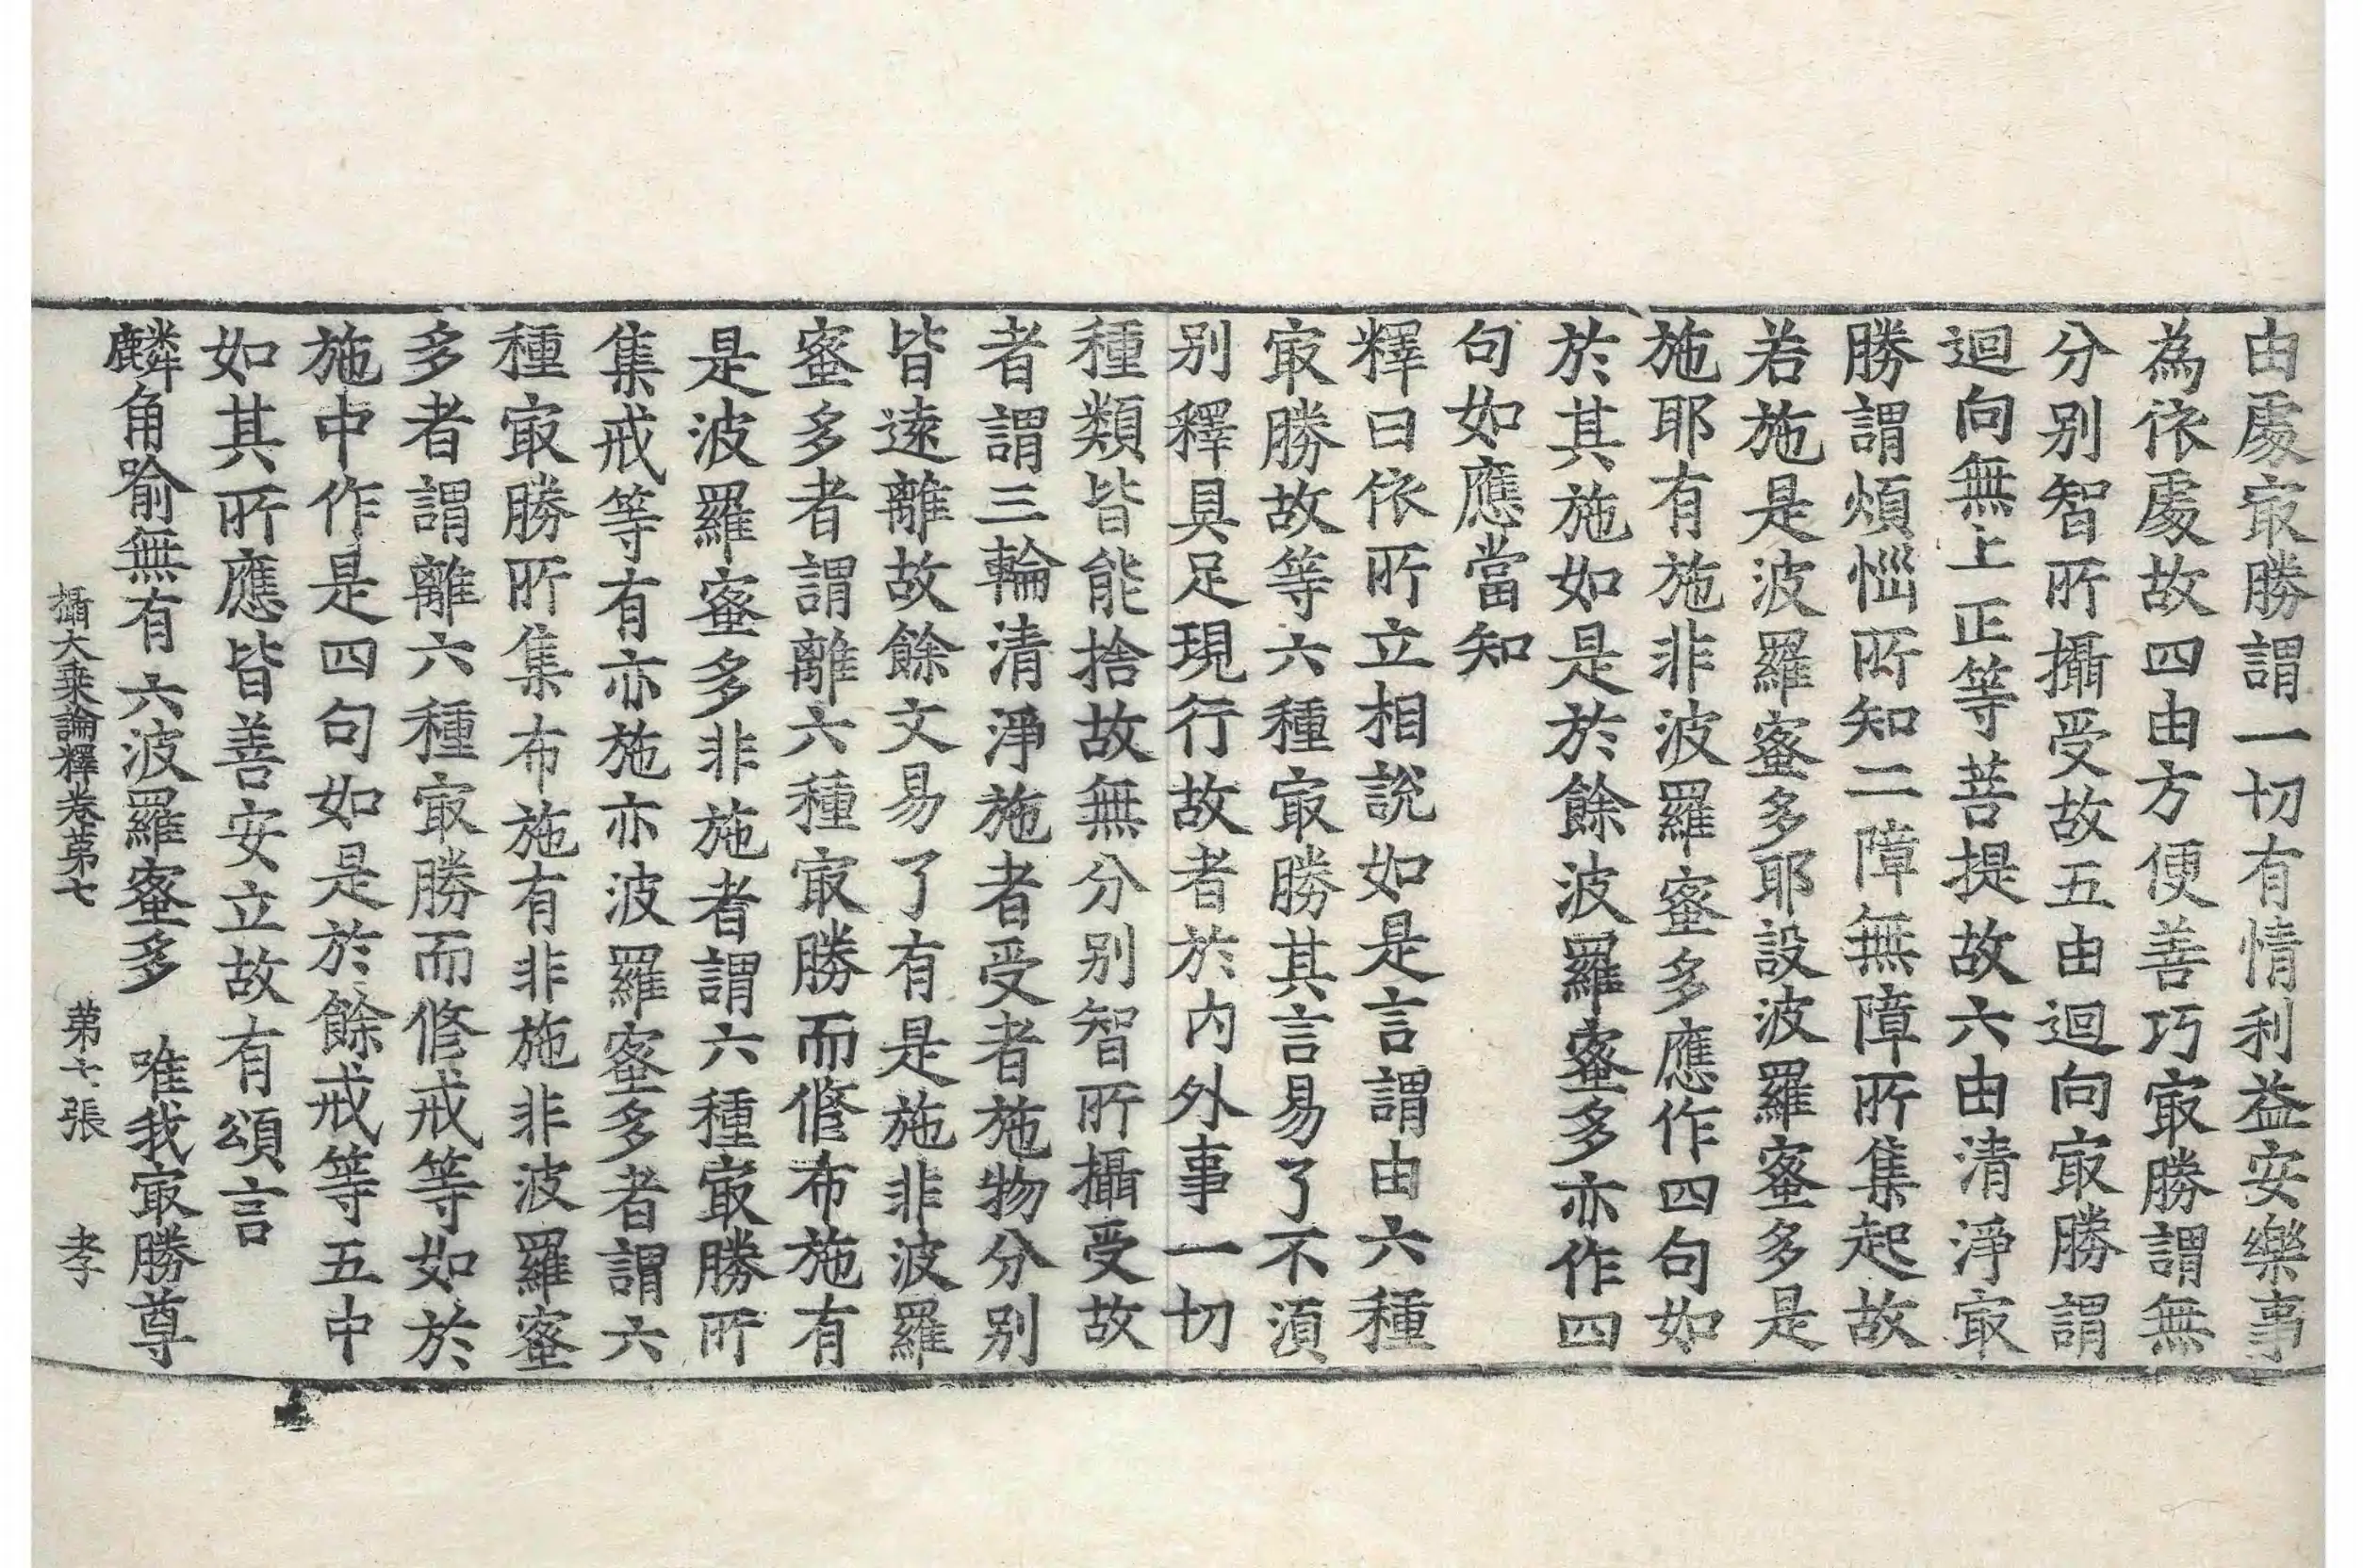 由處㝡勝謂一切有情利益安樂事
為依處故四由方便善巧㝡勝謂無
分别智所攝受故五由迴向㝡勝謂
迴向無上正等菩提故六由清淨㝡
勝謂煩惱所知二障無障所集起故
若施是波羅蜜多耶設波羅蜜多是
施耶有施非波羅蜜多應作四句如
於其施如是於餘波羅蜜多亦作四
句如應當知
釋曰依所立相說如是言謂由六種
㝡勝故等六種㝡勝其言易了不湏
别釋具足現行故者於内外事一切
種類皆能捨故無分别智所攝受故
者謂三輪清淨施者受者施物分别
皆遠離故餘文易了有是施非波羅
蜜多者謂離六種㝡勝而修布施有
是波羅蜜多非施者謂六種㝡勝所
集戒等有亦施亦波羅蜜多者謂六
種㝡勝所集布施有非施非波羅蜜
多者謂離六種㝡勝而修戒等如於
施中作是四句如是於餘戒等五中
如其所應皆善安立故有頌言
麟角喻無有 六波羅蜜多 唯我㝡勝尊
攝大乗論釋卷苐七 苐七張 孝